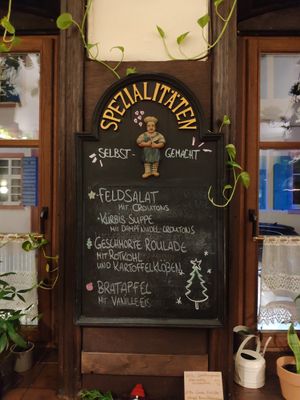 SPEZIALITÄTEN
SELBST- GEMACHT
FELDSALAT
MIT CROUTONS
KÜRBIS SUPPE
MIT DAMPFNUDEL-CROUTONS
GESCHMORTE ROULADE
MIT ROTKOHL
UND KARTOFFELKLÖßEN
BRATAPFEL
MIT VANILLEEIS